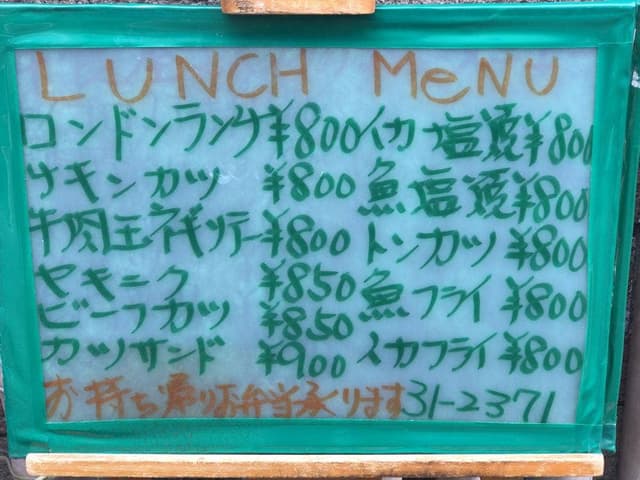 LUNCH MeNU
ロンドンランチ ¥800 イカ塩焼 ¥800
チキンカツ ¥800 魚塩焼 ¥800
牛肉玉ネギソテー ¥800 トンカツ ¥800
ヤキニク ¥850 魚フライ ¥800
ビーフカツ ¥850
カツサンド ¥900 イカフライ ¥800
お持ち帰りお弁当承ります 31-2371